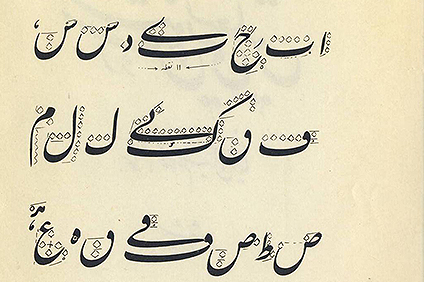 ا ب ر ح ے د س ص
۱۱ نقطه
ف ق ک ل ل م
ص ط ص ف و ه ع